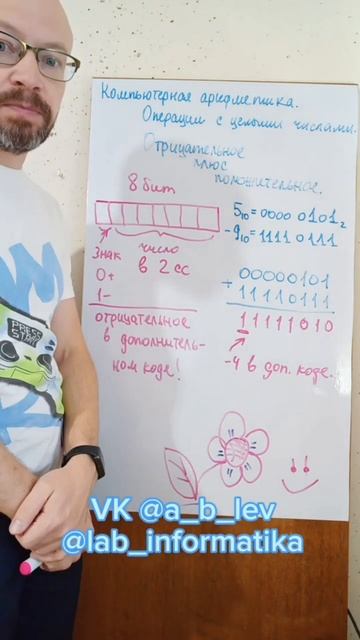 Компьютерная арифметика.
Операции с целыми числами.
Отрицательное
плюс
положительное.
8 бит
знак
0+
1-
число
в 2 сс
отрицательное
в дополнитель-
ном коде!
5₁₀ = 0000 0101₂
-9₁₀ = 1111 0111
00000101
+
11110111
11111010
-4 в доп. коде.
PRESS
START
VK @a_b_lev
@lab_informatika